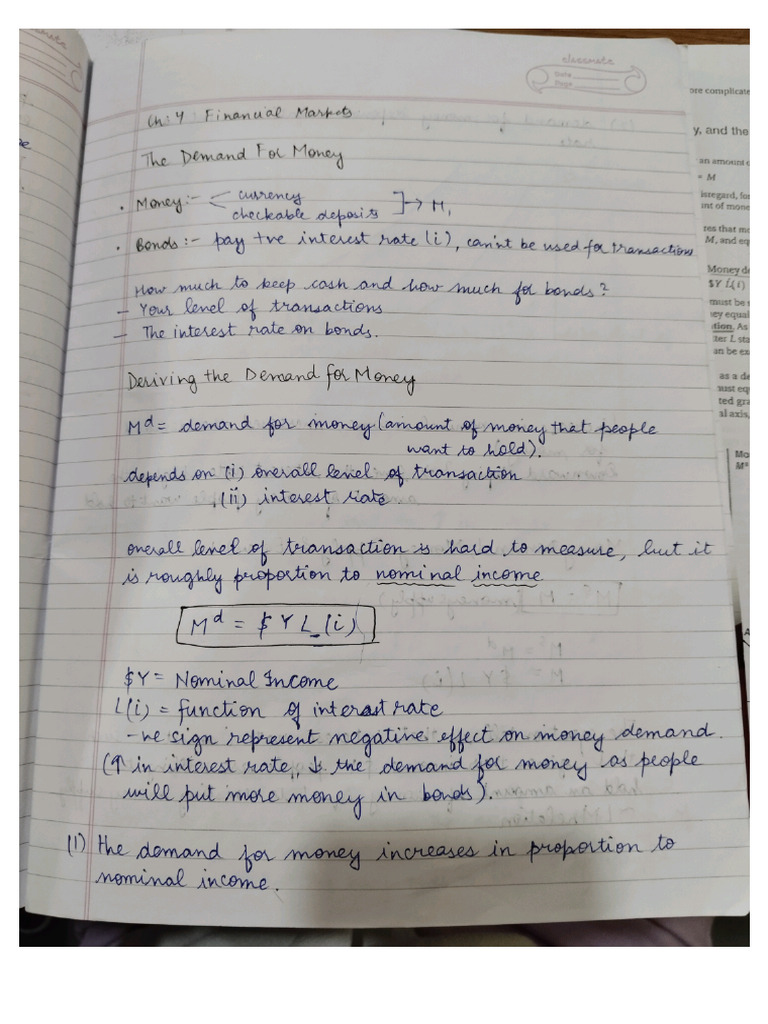 classmate
Date
Page
Ch:4 Financial Markets
The Demand For Money
• Money:- currency
checkable deposits ]→ M₁
• Bonds:- pay +ve interest rate (i), can't be used for transactions
How much to keep cash and how much for bonds?
- Your level of transactions
- The interest rate on bonds.
Deriving the Demand for Money
Mᵈ = demand for money (amount of money that people
want to hold).
depends on (i) overall level of transaction
(ii) interest rate
overall level of transaction is hard to measure, but it
is roughly proportion to nominal income
Mᵈ = $ Y L (i)
$Y = Nominal Income
L(i) = function of interest rate
-ve sign represent negative effect on money demand.
(↑ in interest rate, ↓ the demand for money as people
will put more money in bonds).
(1) the demand for money increases in proportion to
nominal income.
ore complicate
y, and the
an amount o
= M
isregard, for
nt of mone
res that mo
M, and eq
Money de
$Y L(i)
must be
ey equal
tion. As
ter L sta
an be ex
as a de
ust equ
ted gra
al axis,
Mo
Mˢ